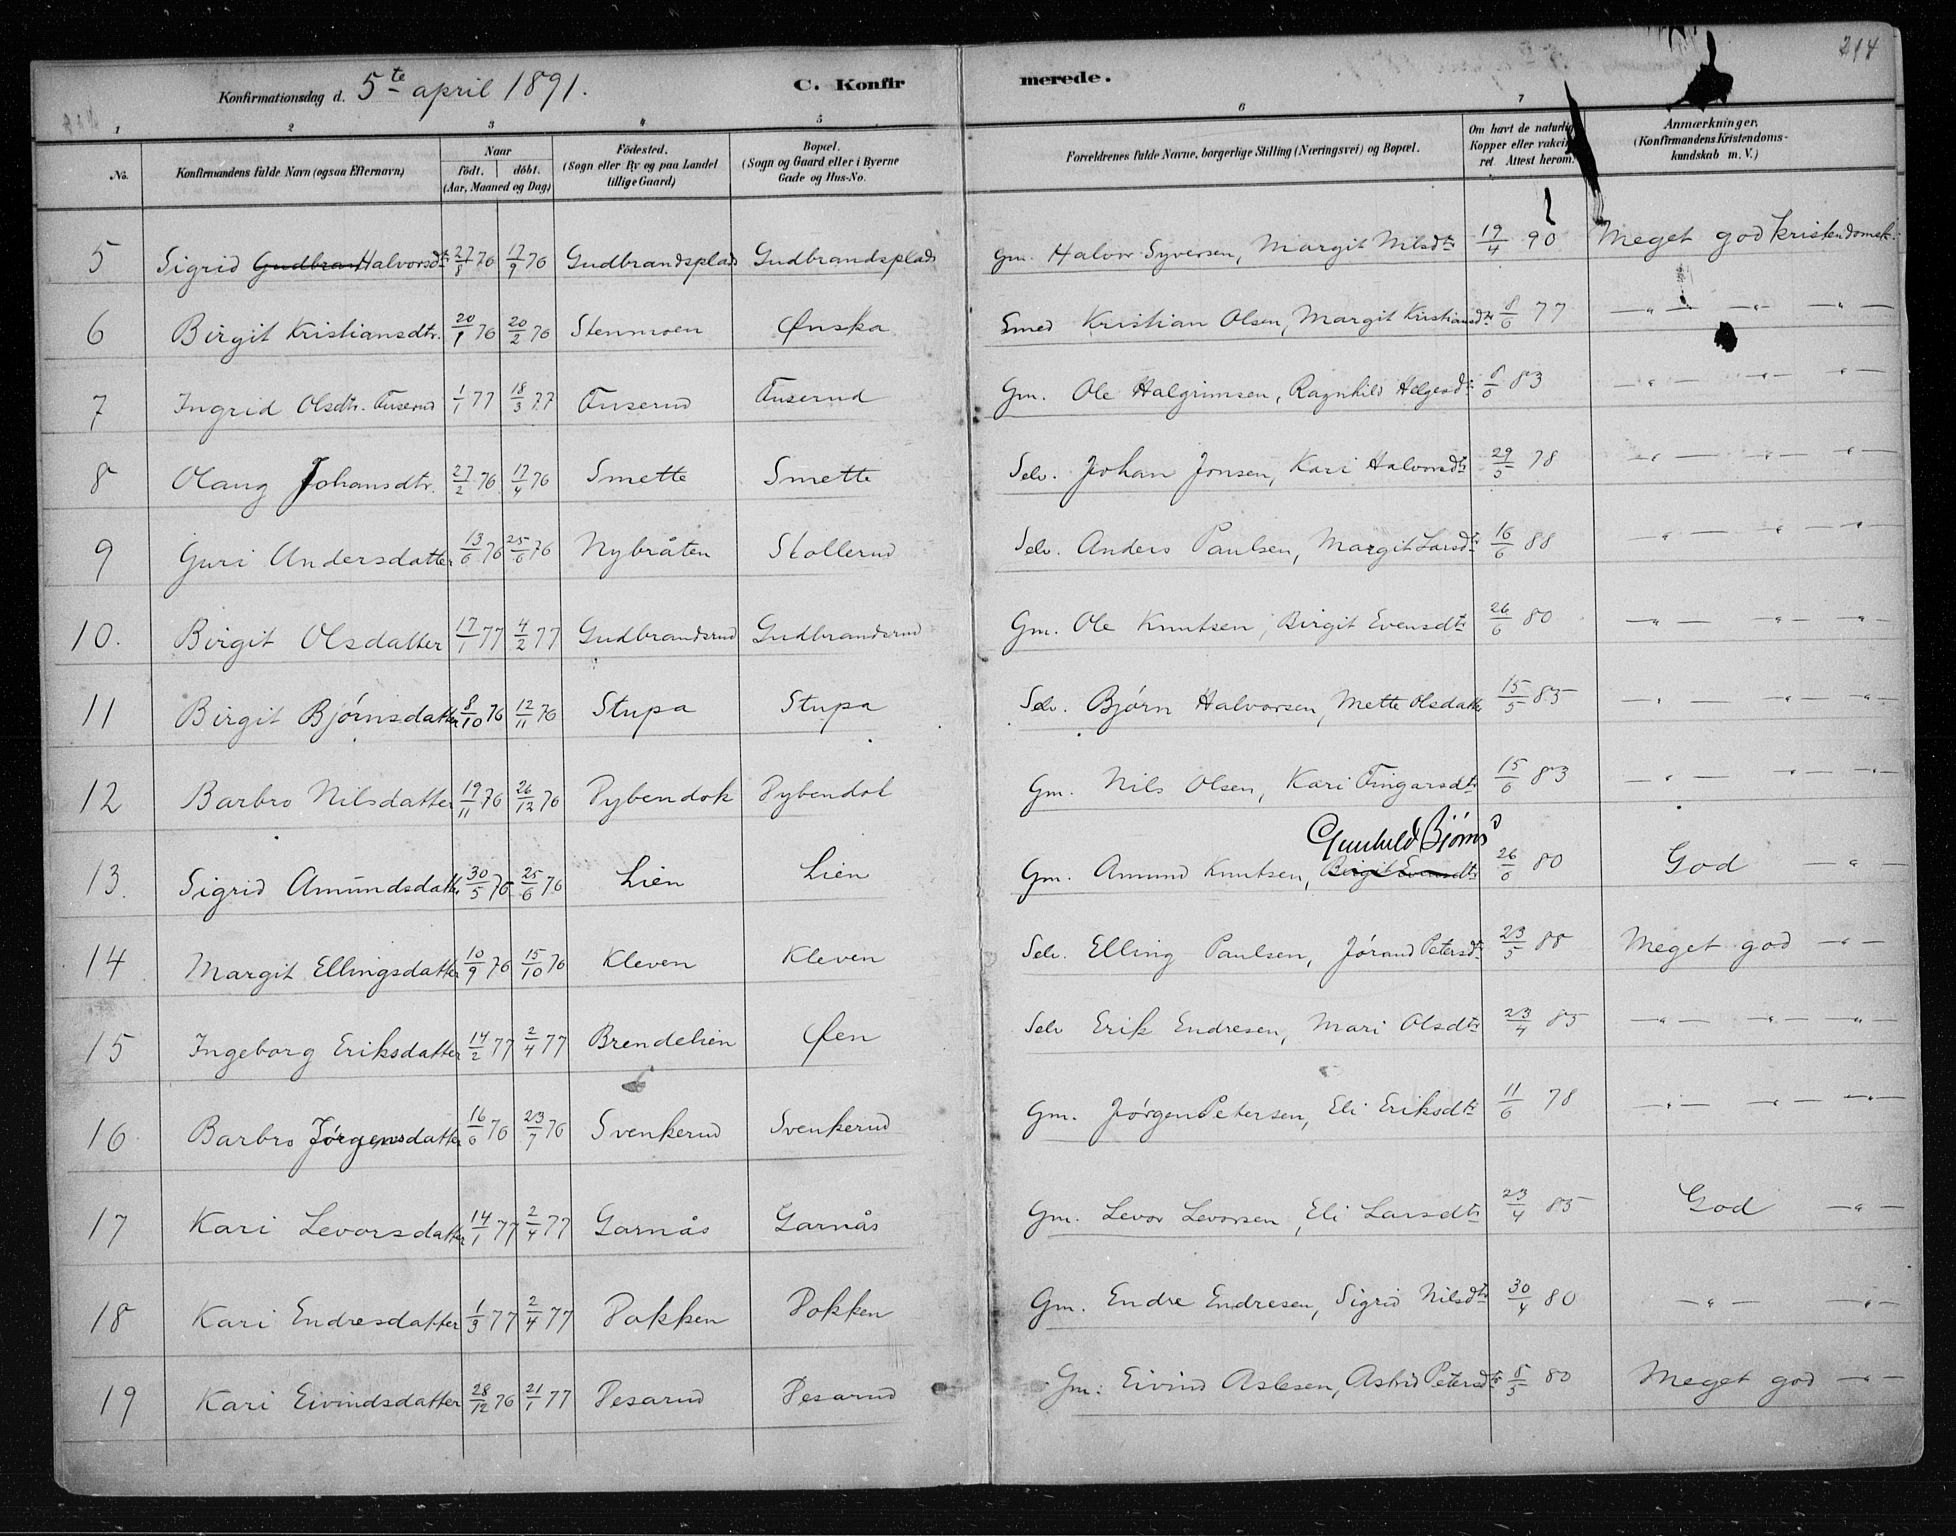 214
Konfirmationsdag d. 5te april 1891. C. Konfirmerede.
1 2 3 4 5 6 7
No. Konfirmandens fulde Navn (ogsaa Efternavn) Naar födt. döbt. (Aar, Maaned og Dag) Födested. (Sogn eller By og paa Landet tillige Gaard) Bopæl. (Sogn og Gaard eller i Byerne Gade og Hus-No. Forældrenes fulde Navne, borgerlige Stilling (Næringsvei) og Bopæl. Om havt de naturlig Kopper eller vakcineret. Attest herom. Anmærkninger, (Konfirmandens Kristendomskundskab m. V.)
5 Sigrid Gudbran Halvorsdtr 27/8 76 17/9 76 Gudbrandsplads Gudbrandsplads Gm. Halvor Syversen, Margit Nilsdtr 19/4 90 Meget god kristendomsk.
6 Birgit Kristiansdtr. 20/1 76 20/2 76 Stenmoen Ønska Smed Kristian Olsen, Margit Kristiansdtr 8/6 77 —"— —"— —"—
7 Ingrid Olsdtr. Tuserud 1/1 77 18/3 77 Tuserud Tuserud Gm. Ole Halgrimsen, Ragnhild Helgesdtr 8/6 83 —"— —"— —"—
8 Olaug Johansdtr. 27/2 76 17/4 76 Smette Smette Selv. Johan Jonsen, Kari Halvorsdtr 29/5 78 —"— —"— —"—
9 Guri Andersdatter 13/6 76 25/6 76 Nybråten Stollerud Selv. Anders Paulsen, Margit Larsdtr 16/6 88 —"— " —"—
10. Birgit Olsdatter 17/1 77 4/2 77 Gudbrandsrud Gudbrandsrud Gm. Ole Knutsen, Birgit Evensdtr 26/6 80 —"— —"— —"—
11 Birgit Bjørnsdatter 8/10 76 12/11 76 Stupa Stupa Selv. Bjørn Halvorsen, Mette Olsdatter 15/5 85 —"— —"— —"—
12 Barbro Nilsdatter 19/11 76 26/12 76 Pybendok Pybendok Gm. Nils Olsen, Kari Fingarsdtr 15/6 83 —"— —"— —"—
Gunhild Bjørns
13. Sigrid Amundsdatter 30/5 76 25/6 76 Lien Lien Gm. Amund Knutsen, Birgit Evensdtr 26/6 80 God —"—
14 Margit Ellingsdatter 10/9 76 15/10 76 Kleven Kleven Selv. Elling Paulsen, Jørand Petersdtr 23/5 88 Meget god —"—
15 Ingeborg Eriksdatter 14/2 77 2/4 77 Brendelien Øen Selv Erik Endresen, Mari Olsdtr 23/4 85 —"— —"— —"—
16 Barbro Jørgensdatter 16/6 76 23/7 76 Svenkerud Svenkerud Gm. Jørgen Petersen, Eli Eriksdtr 11/6 78 —"— —"— —"—
17 Kari Levorsdatter 14/1 77 2/4 77 Garnås Garnås Gm. Levor Levorsen, Eli Larsdtr 23/4 85 God —"—
18 Kari Endresdatter 1/3 77 2/4 77 Pokken Pokken Gm. Endre Endresen, Sigrid Nilsdtr 30/4 80 —"— —"—
19 Kari Eivindsdatter 28/12 76 21/1 77 Pesarud Pesarud Gm. Eivind Aslesen, Astrid Petersdtr 8/5 80 Meget god —"—